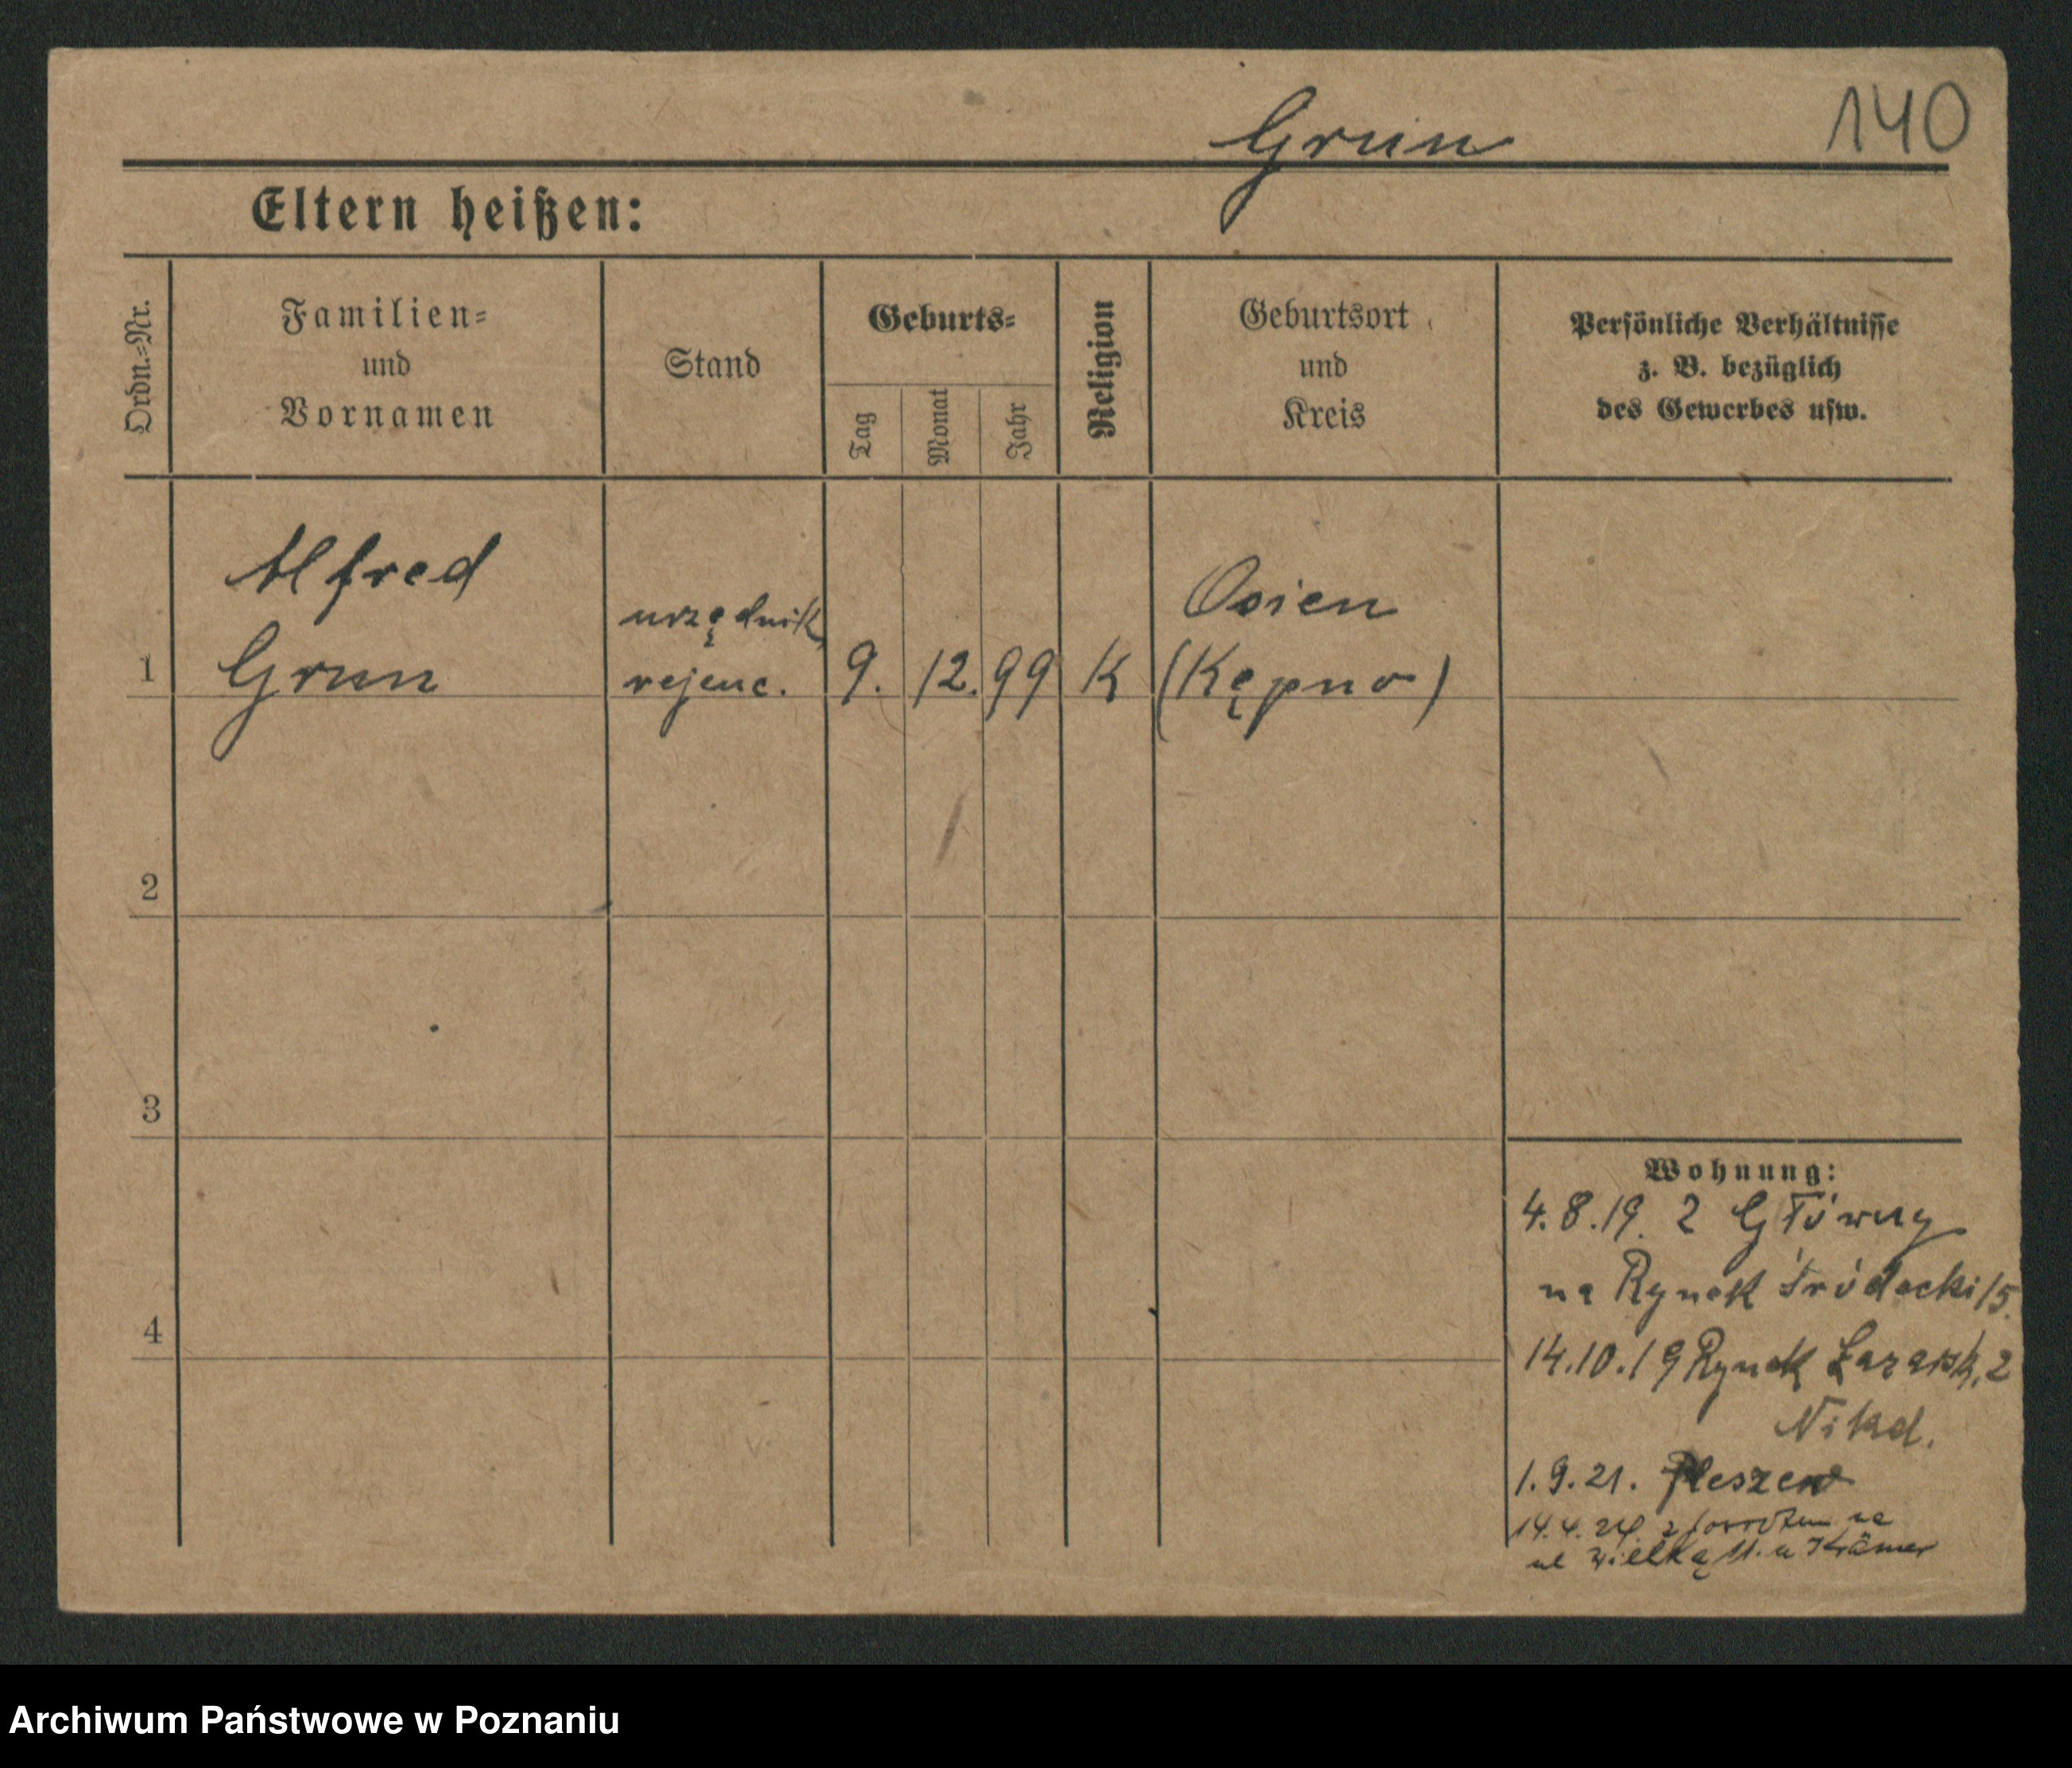 Grün
140
Eltern heißen:
Ordn.=Nr.
Familien=
und
Vornamen
Stand
Geburts=
Tag
Monat
Jahr
Religion
Geburtsort
und
Kreis
Persönliche Verhältnisse
z. B. bezüglich
des Gewerbes usw.
1
Alfred
Grun
urzędnik
rejenc.
9.
12.
99
K
Osien
(Kępno)
2
3
4
Wohnung:
4.8.19. z Główny
na Rynek Śródecki 15.
14.10.19 Rynek Łazarsk. 2
1.9.21. Pleszew
14.4.24. z na
ul Wielką 11. u Krämer
Archiwum Państwowe w Poznaniu